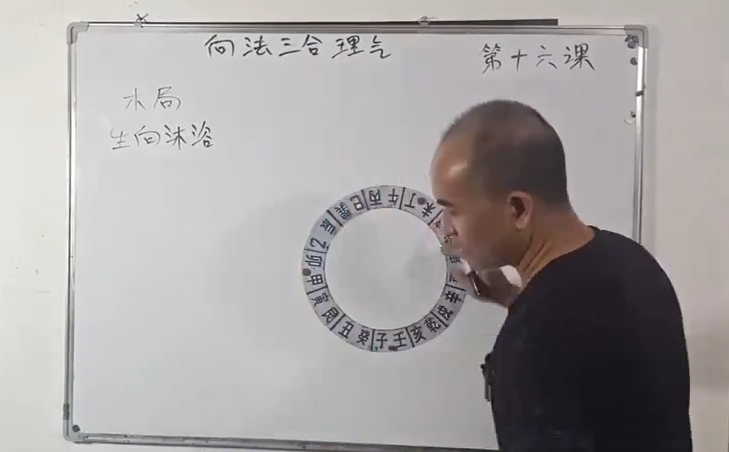 向法三合理气
第十六课
水局
生向沐浴
未丁午丙巳巽辰乙卯甲寅艮丑癸子壬亥乾戌辛